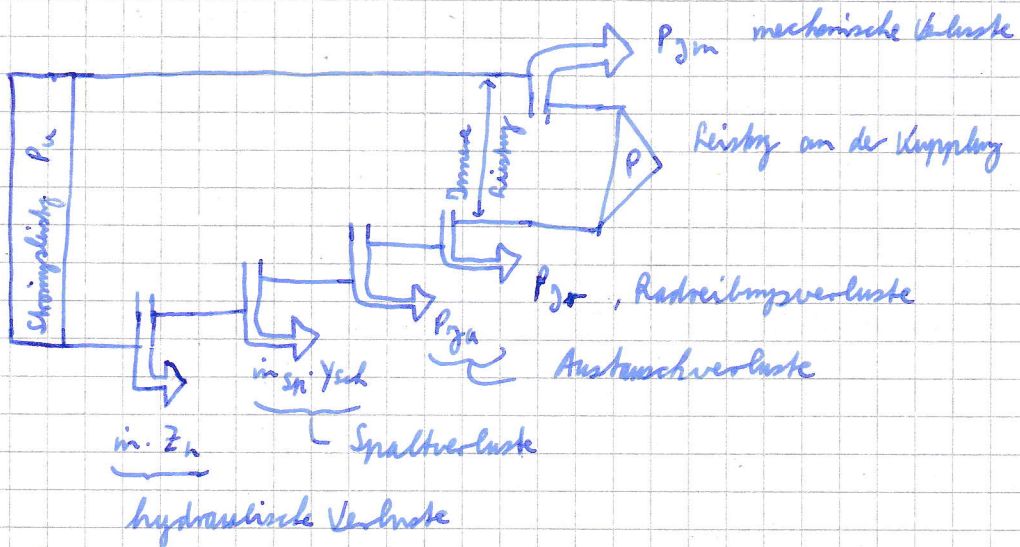 P_Jm mechanische Verluste
Strömungsleistg P_u
Innere
Leistg
P
Leistg an der Kupplung
P_Jr, Radreibungsverluste
P_Ja
Austauschverluste
ṁ_Sp · Y_sch
Spaltverluste
ṁ · Z_h
hydraulische Verluste